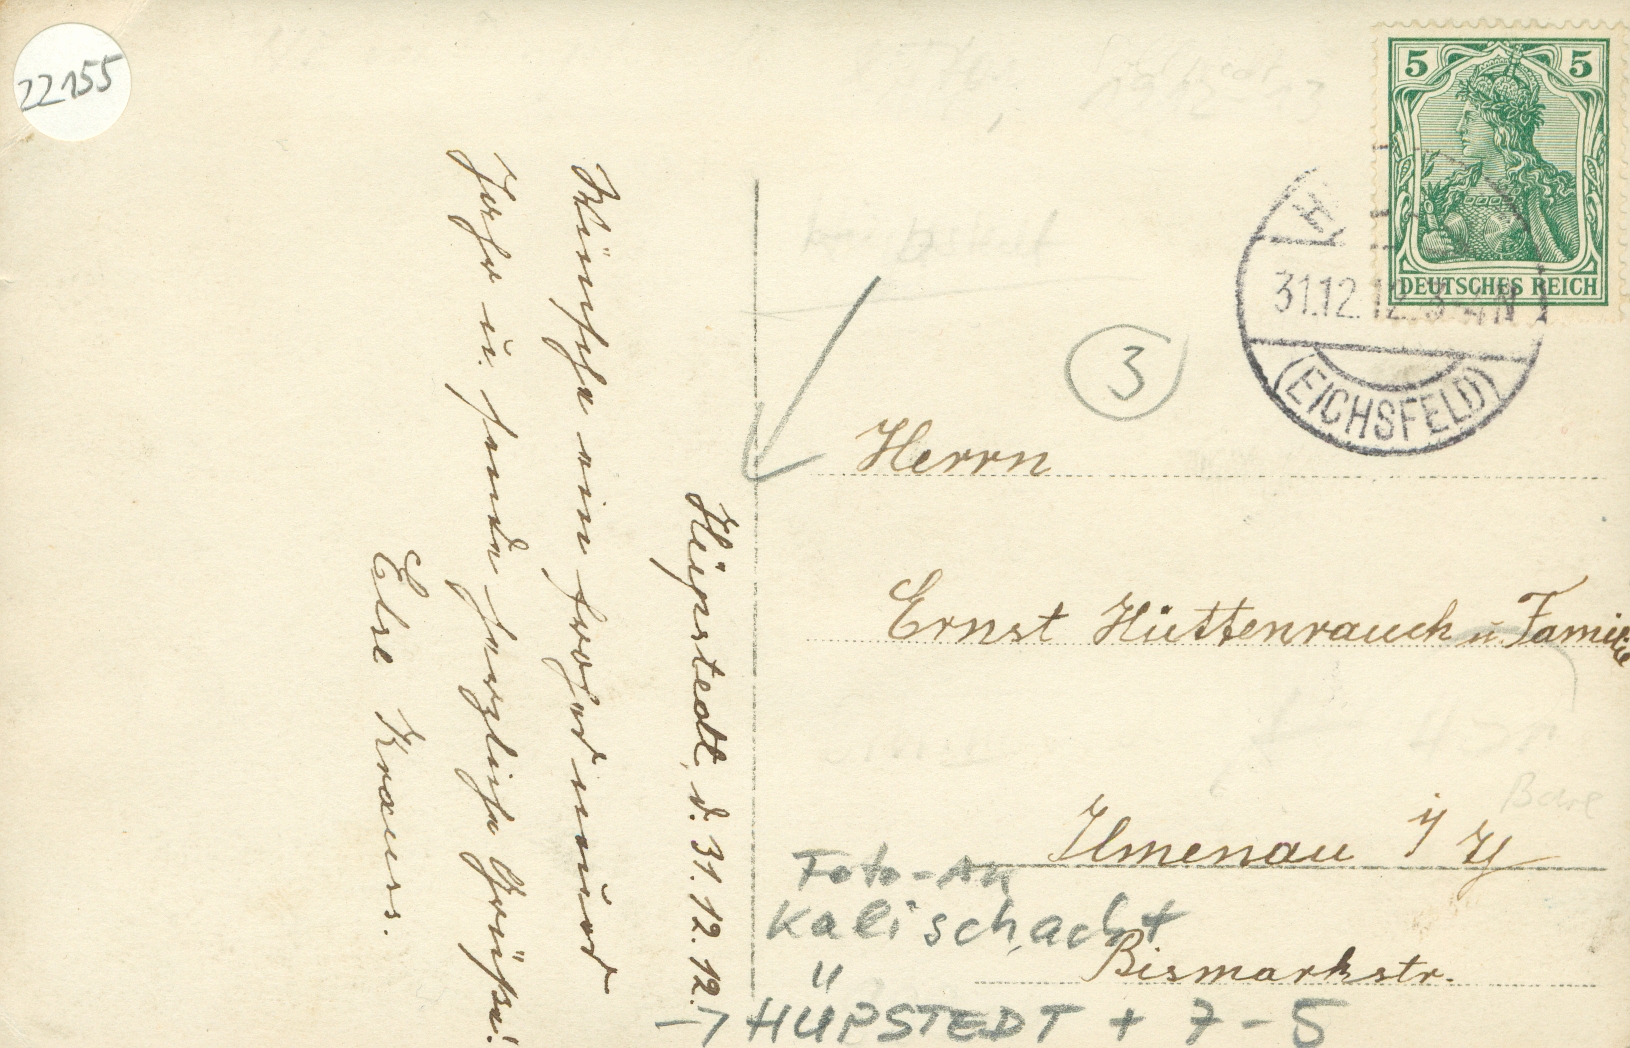 22155
5 5
DEUTSCHES REICH
31.12.12. 3-4N
(EICHSFELD)
3
Hüpstedt, d. 31.12.12.
Wünsche ein frohes neues
Jahr u. sende herzliche Grüße!
Else Kraus.
Herrn
Ernst Hüttenrauch u. Familie
Ilmenau i/Th
Bismarkstr.
Foto-AK
Kalischacht
"
→ HÜPSTEDT + 7-5